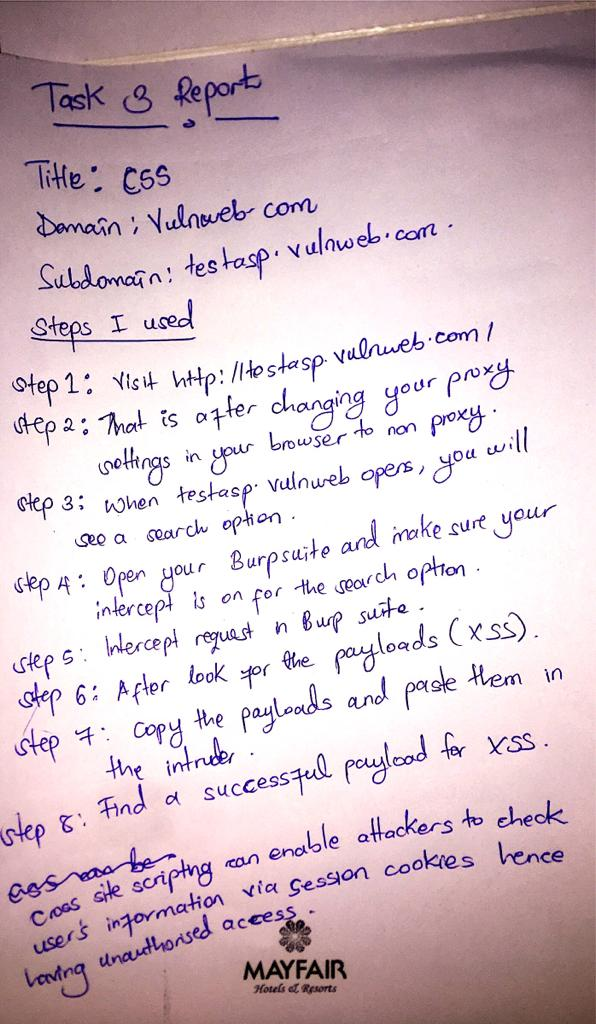 Task 3 Report
Title: CSS
Domain: Vulnweb.com
Subdomain: testasp.vulnweb.com.
Steps I used
Step 1: Visit http://testasp.vulnweb.com/
Step 2: That is after changing your proxy
settings in your browser to non proxy.
Step 3: When testasp.vulnweb opens, you will
see a search option.
Step 4: Open your Burpsuite and make sure your
intercept is on for the search option.
Step 5: Intercept request n Burp suite.
Step 6: After look for the payloads (XSS).
Step 7: Copy the payloads and paste them in
the intruder.
Step 8: Find a successful payload for XSS.
Cross site scripting can enable attackers to check
user's information via session cookies hence
having unauthorised access.
MAYFAIR
Hotels & Resorts